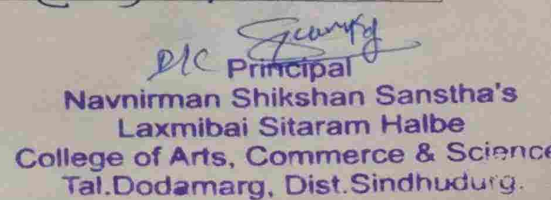 Principal
Navnirman Shikshan Sanstha's
Laxmibai Sitaram Halbe
College of Arts, Commerce & Science
Tal.Dodamarg, Dist.Sindhudurg.